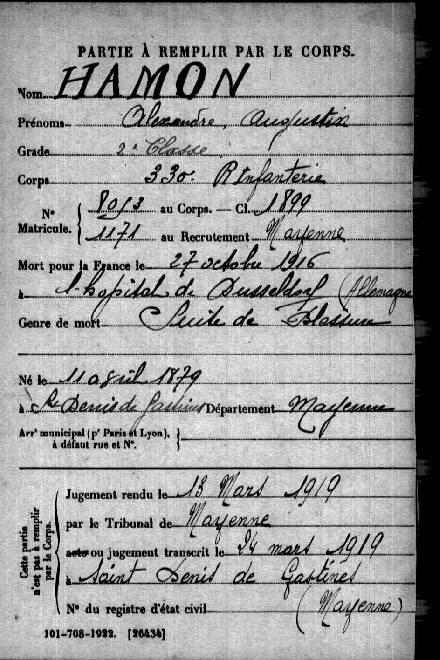 PARTIE À REMPLIR PAR LE CORPS.
Nom HAMON
Prénoms Alexandre, Augustin
Grade 2e Classe
Corps 330e R Infanterie
N° Matricule. { 8013 au Corps. — Cl. 1899
1171 au Recrutement Mayenne
Mort pour la France le 27 octobre 1916
à l'hopital de Dusseldorf (Allemagne
Genre de mort Suite de Blessure
Né le 11 avril 1879
à St Denis de Gastines Département Mayenne
Arrt municipal (pr Paris et Lyon), à défaut rue et N°. }
Cette partie n'est pas à remplir par le Corps. {
Jugement rendu le 13 Mars 1919
par le Tribunal de Mayenne
acte ou jugement transcrit le 24 mars 1919
à Saint Denis de Gastines
N° du registre d'état civil (Mayenne)
101-708-1922. [26434]